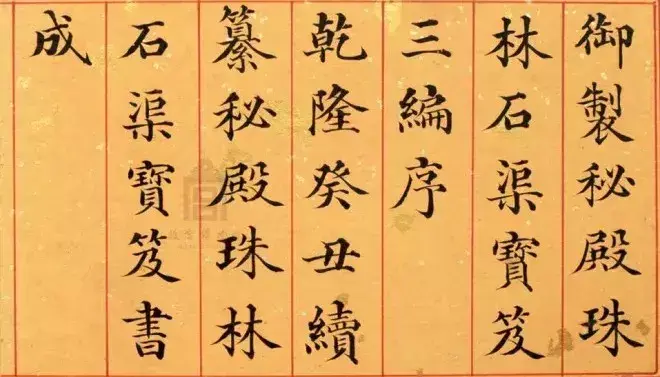 御製秘殿珠
林石渠寶笈
三編序
乾隆癸丑續
纂秘殿珠林
石渠寶笈書
成